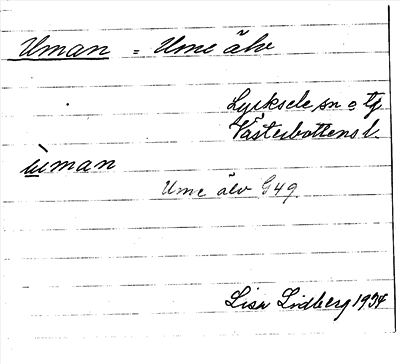 Uman = Ume älv
Lycksele sn o tg
Västerbottens l.
ùman
Ume älv G49
Lisa Lidberg 1934